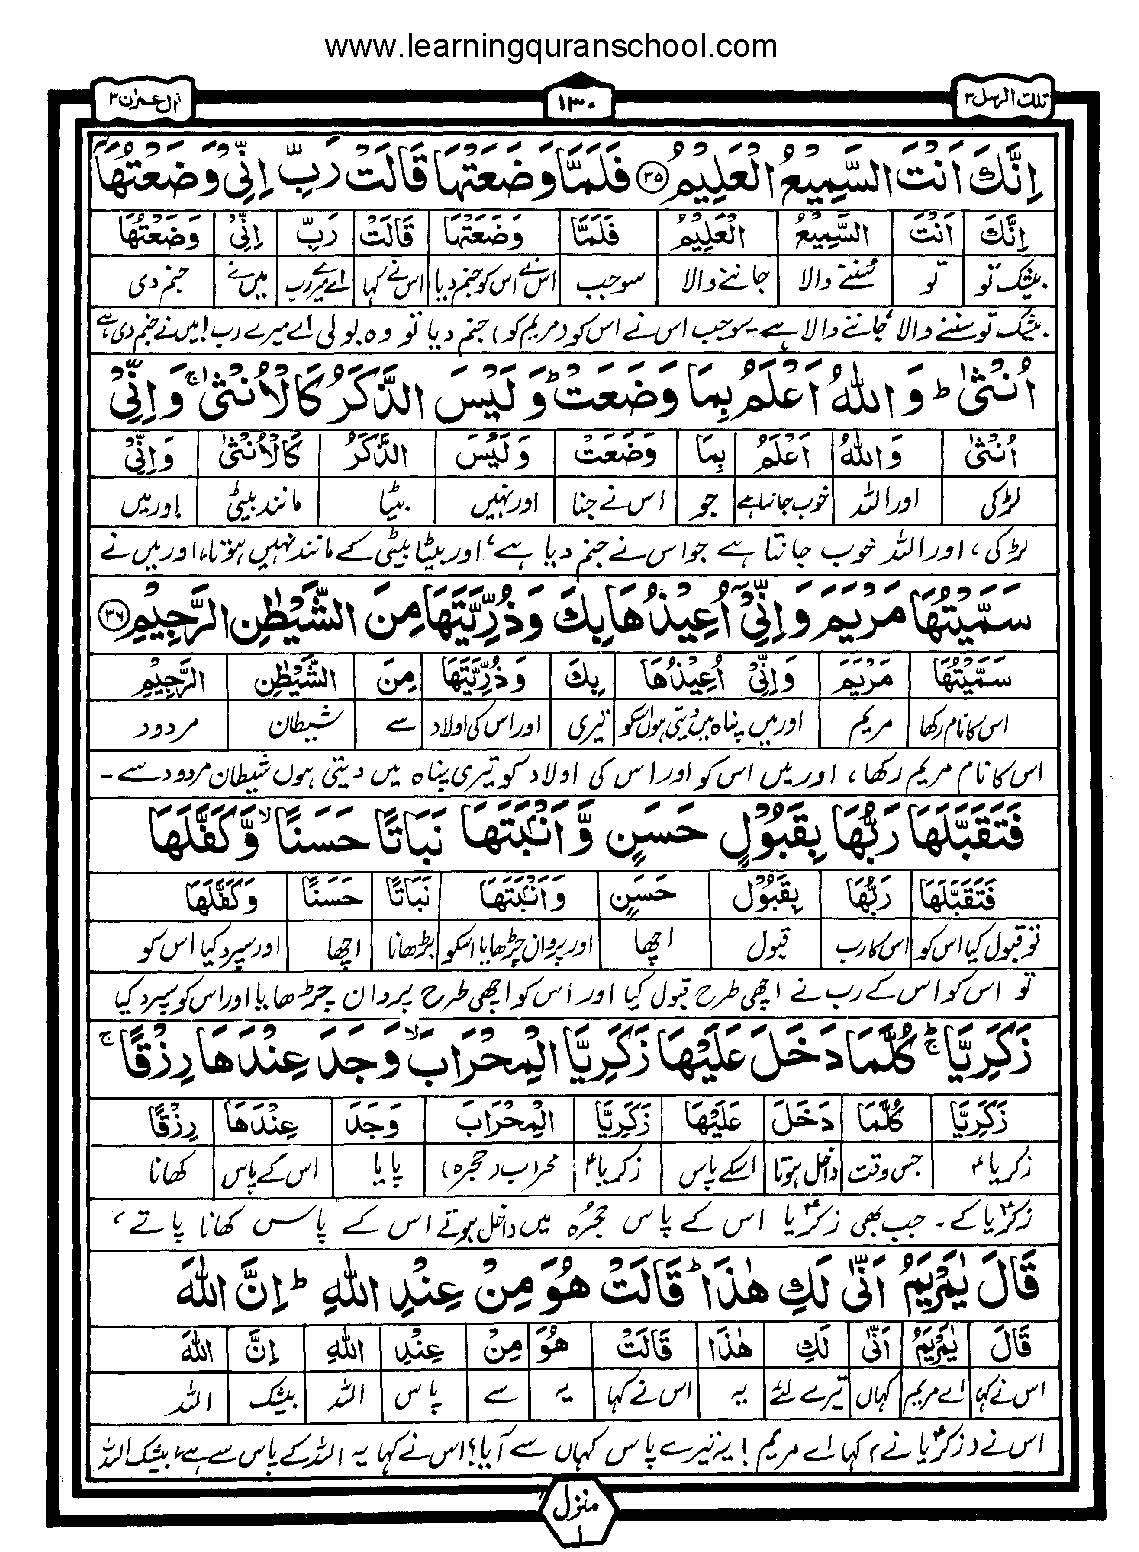 www.learningquranschool.com
تلك الرسل ٣ ١٣٠ اٰل عمران ٣
اِنَّكَ اَنْتَ السَّمِيْعُ الْعَلِيْمُ ۝٣٥ فَلَمَّا وَضَعَتْهَا قَالَتْ رَبِّ اِنِّىْ وَضَعْتُهَاۤ
اِنَّكَ اَنْتَ السَّمِيْعُ الْعَلِيْمُ فَلَمَّا وَضَعَتْهَا قَالَتْ رَبِّ اِنِّىْ وَضَعْتُهَا
بیشک تو تو سننے والا جاننے والا سو جب اس نے اس کو جنم دیا اس نے کہا اے میرے رب میں نے جنم دی
بیشک تو سننے والا جاننے والا ہے۔ سو جب اس نے اس کو (مریم کو) جنم دیا تو وہ بولی اے میرے رب! میں نے جنم دی ہے
اُنْثٰىؕ وَاللّٰهُ اَعْلَمُ بِمَا وَضَعَتْؕ وَلَيْسَ الذَّكَرُ كَالْاُنْثٰىۚ وَاِنِّىْ
اُنْثٰى وَاللّٰهُ اَعْلَمُ بِمَا وَضَعَتْ وَلَيْسَ الذَّكَرُ كَالْاُنْثٰى وَاِنِّىْ
لڑکی اور اللہ خوب جانتا ہے جو اس نے جنا اور نہیں بیٹا مانند بیٹی اور میں
لڑکی، اور اللہ خوب جانتا ہے جو اس نے جنم دیا ہے، اور بیٹا بیٹی کے مانند نہیں ہوتا، اور میں نے
سَمَّيْتُهَا مَرْيَمَ وَاِنِّىْۤ اُعِيْذُهَا بِكَ وَذُرِّيَّتَهَا مِنَ الشَّيْطٰنِ الرَّجِيْمِ ۝٣٦
سَمَّيْتُهَا مَرْيَمَ وَاِنِّىْ اُعِيْذُهَا بِكَ وَذُرِّيَّتَهَا مِنَ الشَّيْطٰنِ الرَّجِيْمِ
اس کا نام رکھا مریم اور میں پناہ میں دیتی ہوں اسکو تیری اور اس کی اولاد سے شیطان مردود
اس کا نام مریم رکھا، اور میں اس کو اور اس کی اولاد کو تیری پناہ میں دیتی ہوں شیطان مردود سے۔
فَتَقَبَّلَهَا رَبُّهَا بِقَبُوْلٍ حَسَنٍ وَّاَنْۢبَتَهَا نَبَاتًا حَسَنًاۙ وَّكَفَّلَهَا
فَتَقَبَّلَهَا رَبُّهَا بِقَبُوْلٍ حَسَنٍ وَاَنْۢبَتَهَا نَبَاتًا حَسَنًا وَكَفَّلَهَا
تو قبول کیا اس کو اس کا رب قبول اچھا اور پروان چڑھایا اسکو بڑھانا اچھا اور سپرد کیا اس کو
تو اس کو اس کے رب نے اچھی طرح قبول کیا اور اس کو اچھی طرح پروان چڑھایا اور اس کو سپرد کیا
زَكَرِيَّاؕۚ كُلَّمَا دَخَلَ عَلَيْهَا زَكَرِيَّا الْمِحْرَابَۙ وَجَدَ عِنْدَهَا رِزْقًاۚ
زَكَرِيَّا كُلَّمَا دَخَلَ عَلَيْهَا زَكَرِيَّا الْمِحْرَابَ وَجَدَ عِنْدَهَا رِزْقًا
زکریاؑ جس وقت داخل ہوتا اسکے پاس زکریاؑ محراب (حجرہ) پایا اس کے پاس کھانا
زکریاؑ کے۔ جب بھی زکریاؑ اس کے پاس حجرہ میں داخل ہوتے اس کے پاس کھانا پاتے،
قَالَ يٰمَرْيَمُ اَنّٰى لَكِ هٰذَاؕ قَالَتْ هُوَ مِنْ عِنْدِ اللّٰهِؕ اِنَّ اللّٰهَ
قَالَ يٰمَرْيَمُ اَنّٰى لَكِ هٰذَا قَالَتْ هُوَ مِنْ عِنْدِ اللّٰهِ اِنَّ اللّٰهَ
اس نے کہا اے مریم کہاں تیرے لئے یہ اس نے کہا یہ سے پاس اللہ بیشک اللہ
اس نے (زکریاؑ نے) کہا اے مریم! یہ تیرے پاس کہاں سے آیا؟ اس نے کہا یہ اللہ کے پاس سے ہے، بیشک اللہ
منزل ١